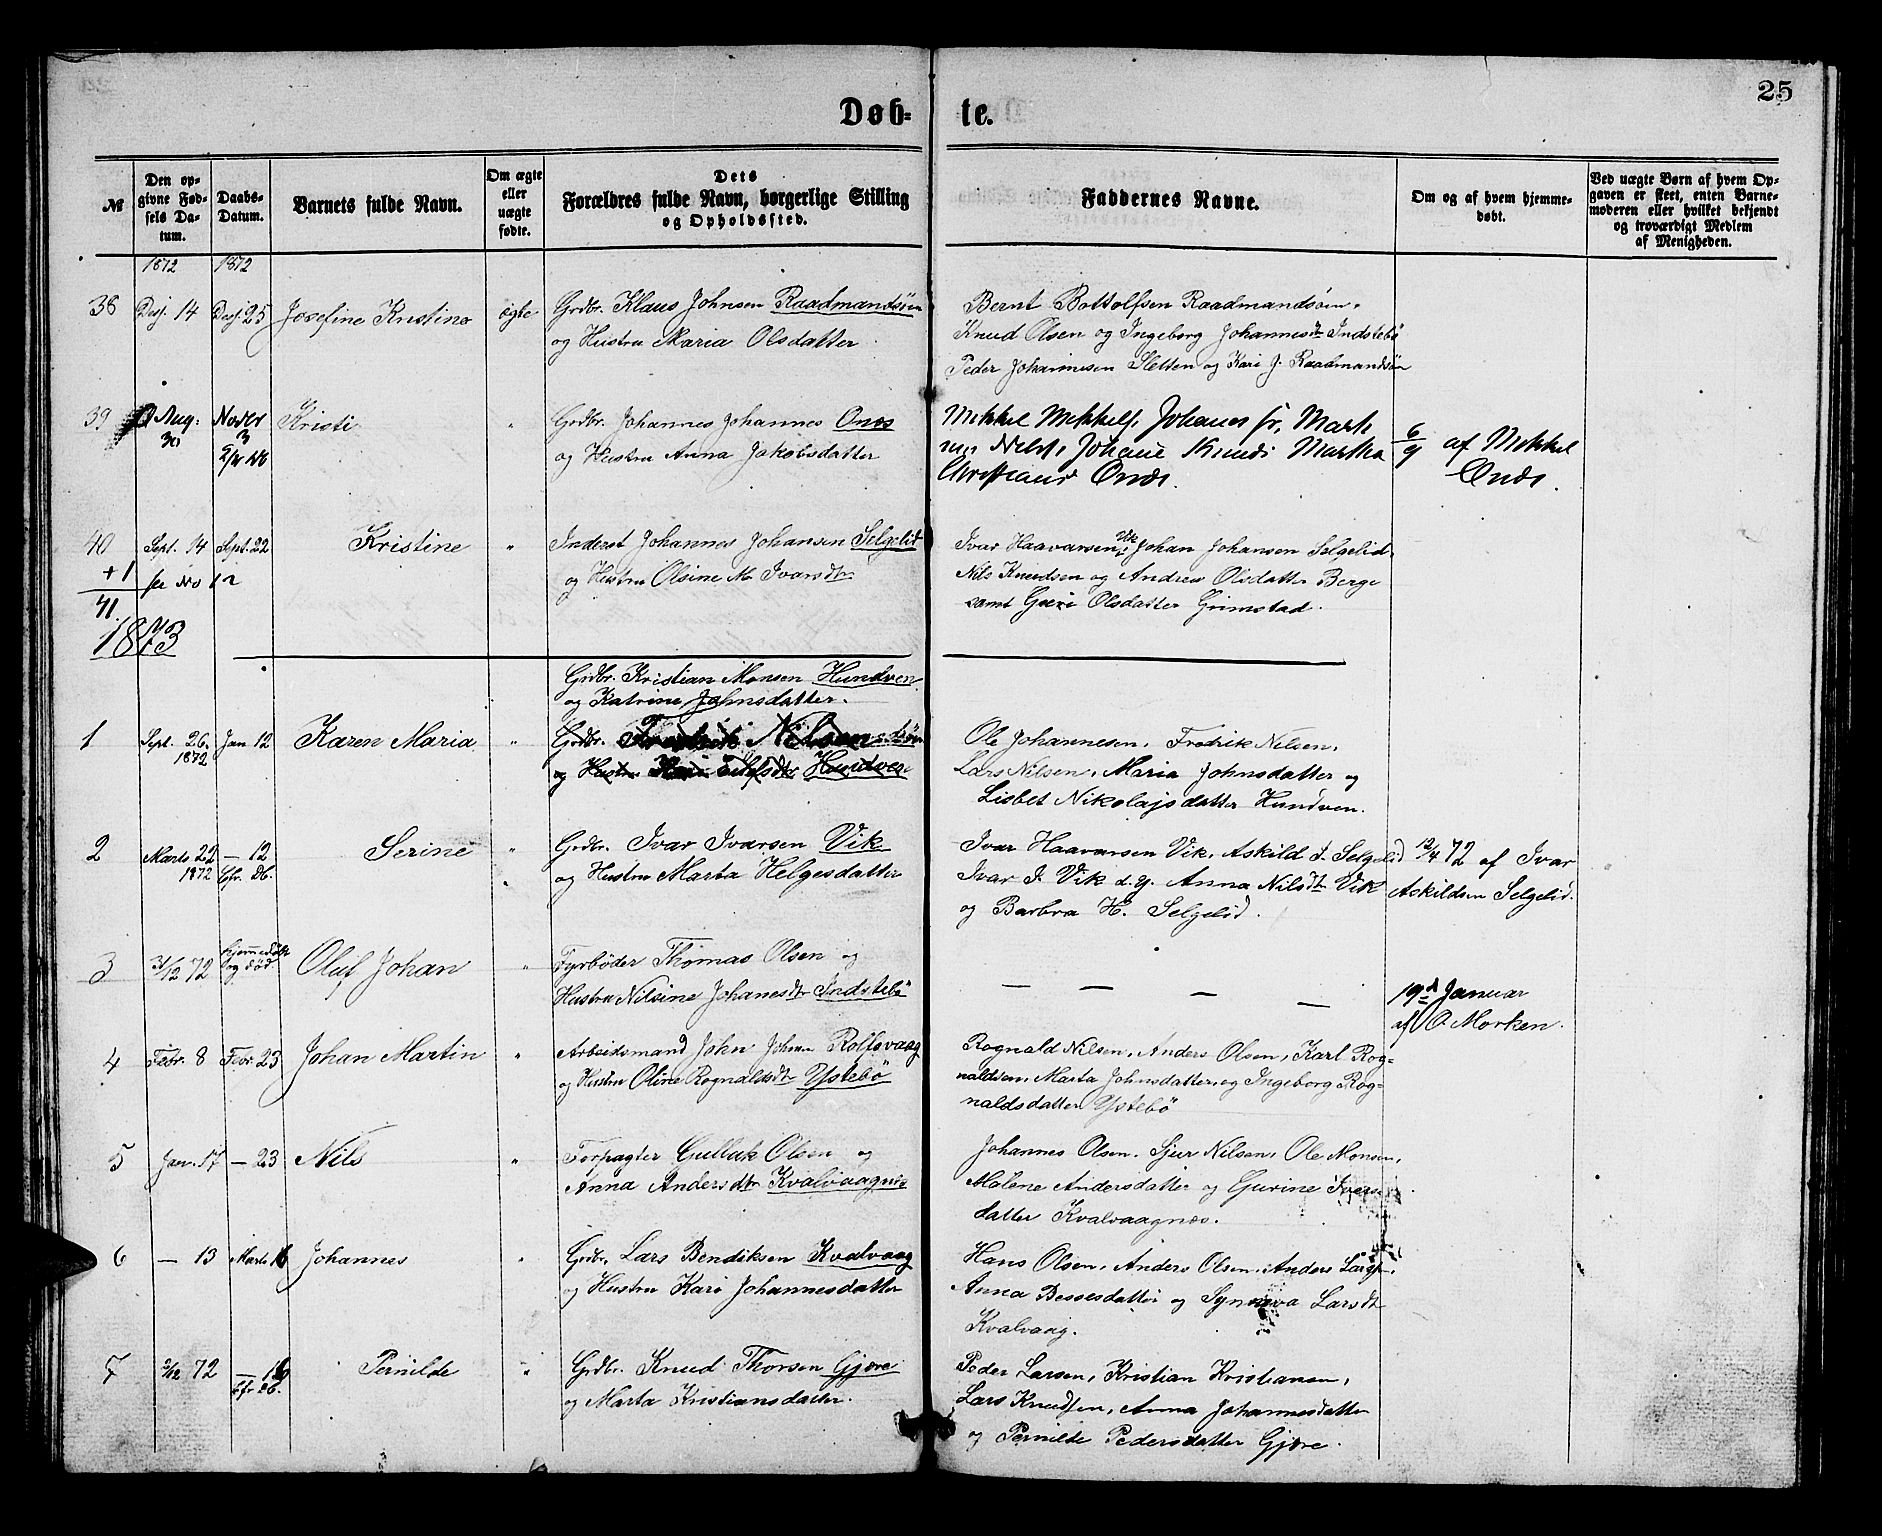 25
Døb- te.
№
Den op-
givne Fød-
sels Da-
tum.
Daabs-
Datum.
Barnets fulde Navn.
Om ægte
eller
uægte
fødte.
Dets
Forældres fulde Navn, borgerlige Stilling
og Opholdssted.
Faddernes Navne.
Om og af hvem hjemme-
døbt.
Ved uægte Børn af hvem Op-
gaven er skeet, enten Barne-
moderen eller hvilket bekjendt
og troværdigt Medlem
af Menigheden.
1872 1872
38 Desj. 14 Desj. 25 Josefine Kristine ægte Grdbr. Klaus Johnsen Raadmandsön
og Hustru Maria Olsdatter
Bernt Bottolfsen Raadmandsön.
Knud Olsen og Ingeborg Johannesdtr Indstebö
Peder Johannesen Sletten og Kari J. Raadmandsön
39 Aug: 30 Novbr 3 Kristi " Grdbr. Johannes Johannes Ones
og Hustru Anna Jakobsdatter
Mikkel Mikkels, Johanes
Nels, Johane Knuds Martha
Christians Onds.
6/9 af Mikkel
Onds.
40 Sept. 14 Sept. 22 Kristine " Inderst Johannes Johansen Selgelid
og Hustru Olsine M. Ivarsdtr
Ivar Haavarsen Vik, Johan Johansen Selgelid.
Nils Knudsen og Andrea Olsdatter Berge
samt Guri Olsdatter Grimstad.
+1 se No 12
41.
1873
Grdbr. Kristian Monsen Hundven
og Katrine Johnsdatter.
1 Sept. 26. 1872 Jan 12 Karen Maria " Grdbr. Fredrik Nilsen
og Hustru Hundven
Ole Johannesen, Fredrik Nilsen,
Lars Nilsen, Maria Johnsdatter og
Lisbet Nikolajsdatter Hundven.
2 Marts 22 1872 — 12 Cfr. Db. Serine " Grdbr. Ivar Ivarsen Vik
og Hustru Marta Helgesdatter
Ivar Haavarsen Vik, Askild I. Selgelid
Ivar I. Vik d. y. Anna Nilsdtr Vik
og Barbra H. Selgelid.
12/4 72 af Ivar
Askildsen Selgelid.
3 31/12 72 hjemmedöbt
og död Oluf Johan " Fyrböder Thomas Olsen og
Hustru Nilsine Johanesdtr Indstebö
— — — —
19d Januar
af O Morken.
4 Febr. 8 Febr. 23 Johan Martin " Arbeidsmand John Johan Rolfsvaag
og Hustru Oline Rognaldsdtr Ystebö
Rognald Nilsen, Anders Olsen, Karl Rog-
naldsen, Marta Johnsdatter og Ingeborg Rog-
naldsdatter Ystebö
5 Jan. 17 — 23 Nils " Forpagter Gulluk Olsen og
Anna Andersdtr Kvalvaagnes
Johannes Olsen. Sjur Nilsen, Ole Monsen,
Malene Andersdatter og Gurine Ivers-
datter Kvalvaagnes.
6 — 13 Marts 16 Johannes " Grdbr. Lars Bendiksen Kvalvaag
og Hustru Kari Johannesdatter
Hans Olsen, Anders Olsen, Anders Larss.
Anna Bessesdatter og Synneva Larsdt
Kvalvaag.
7 2/12 72 — 16 Cfr Db. Pernilde " Grdbr. Knud Thorsen Gjöre
og Marta Kristiansdatter.
Peder Larsen, Kristian Kristiansen,
Lars Knudsen, Anna Johannesdatter
og Pernilde Pedersdatter Gjöre.